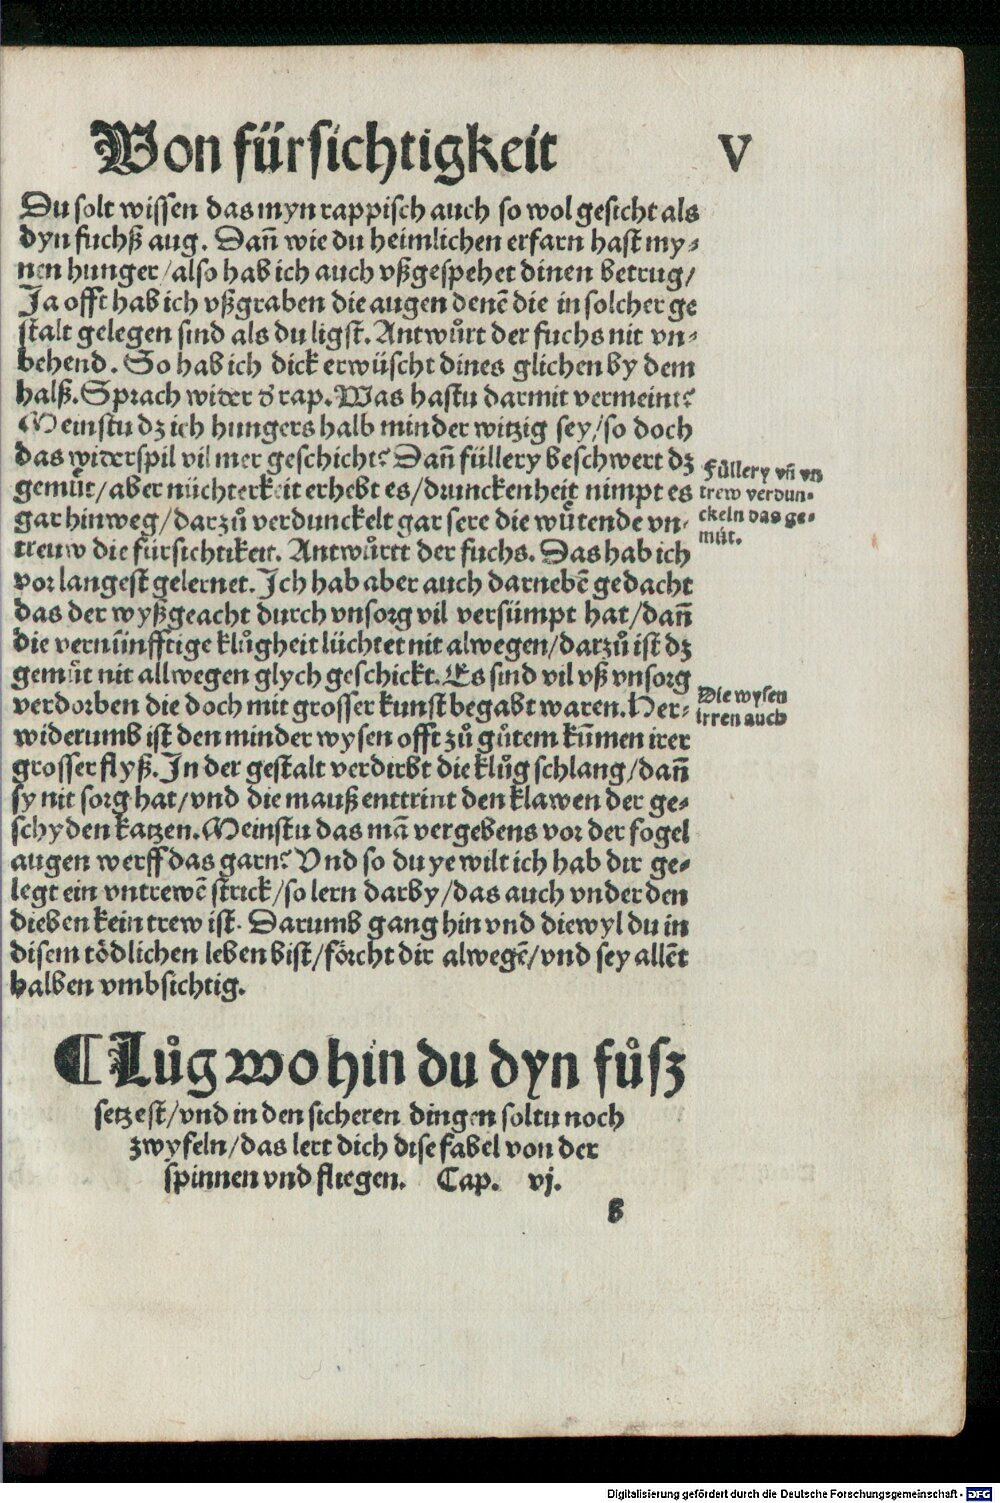 Von fürsichtigkeit V
Du solt wissen das myn rappisch auch so wol gesicht als
dyn fuchß aug. Dañ wie du heimlichen erfarn hast my⸗
nen hunger/also hab ich auch vßgespehet dinen betrug/
Ja offt hab ich vßgraben die augen denē die in solcher ge
stalt gelegen sind als du ligst. Antwůrt der fuchs nit vn⸗
behend. So hab ich dick erwüscht dines glichen by dem
halß. Sprach wider d̕ rap. Was hastu darmit vermeint?
Meinstu dz ich hungers halb minder witzig sey/so doch
das widerspil vil mer geschicht? Dañ füllery beschwert dz
gemůt/aber nüchterkeit erhebt es/drunckenheit nimpt es
gar hinweg/darzů verdunckelt gar sere die wůtende vn⸗
treuw die fürsichtikeit. Antwůrtt der fuchs. Das hab ich
vor langest gelernet. Ich hab aber auch darnebē gedacht
das der wyßgeacht durch vnsorg vil versümpt hat/dañ
die vernünfftige klůgheit lüchtet nit alwegen/darzů ist dz
gemůt nit allwegen glych geschickt. Es sind vil vß vnsorg
verdorben die doch mit grosser kunst begabt waren. Her⸗
widerumb ist den minder wysen offt zů gůtem kūmen irer
grosser flyß. In der gestalt verdirbt die klůg schlang/dañ
sy nit sorg hat/vnd die mauß enttrint den klawen der ge⸗
schyden katzen. Meinstu das mā vergebens vor der fogel
augen werff das garn? Vnd so du ye wilt ich hab dir ge⸗
legt ein vntrewē strick/so lern darby/das auch vnder den
dieben kein trew ist. Darumb gang hin vnd diewyl du in
disem tödlichen leben bist/förcht dir alwegē/vnd sey allēt
halben vmbsichtig.
Füllery vñ vn
trew verdun⸗
ckeln das ge⸗
müt.
Die wysen
irren auch
¶ Lůg wo hin du dyn fůsz
setzest/vnd in den sicheren dingen soltu noch
zwyfeln/das lert dich dise fabel von der
spinnen vnd fliegen. Cap. vj.
B
Digitalisierung gefördert durch die Deutsche Forschungsgemeinschaft - DFG